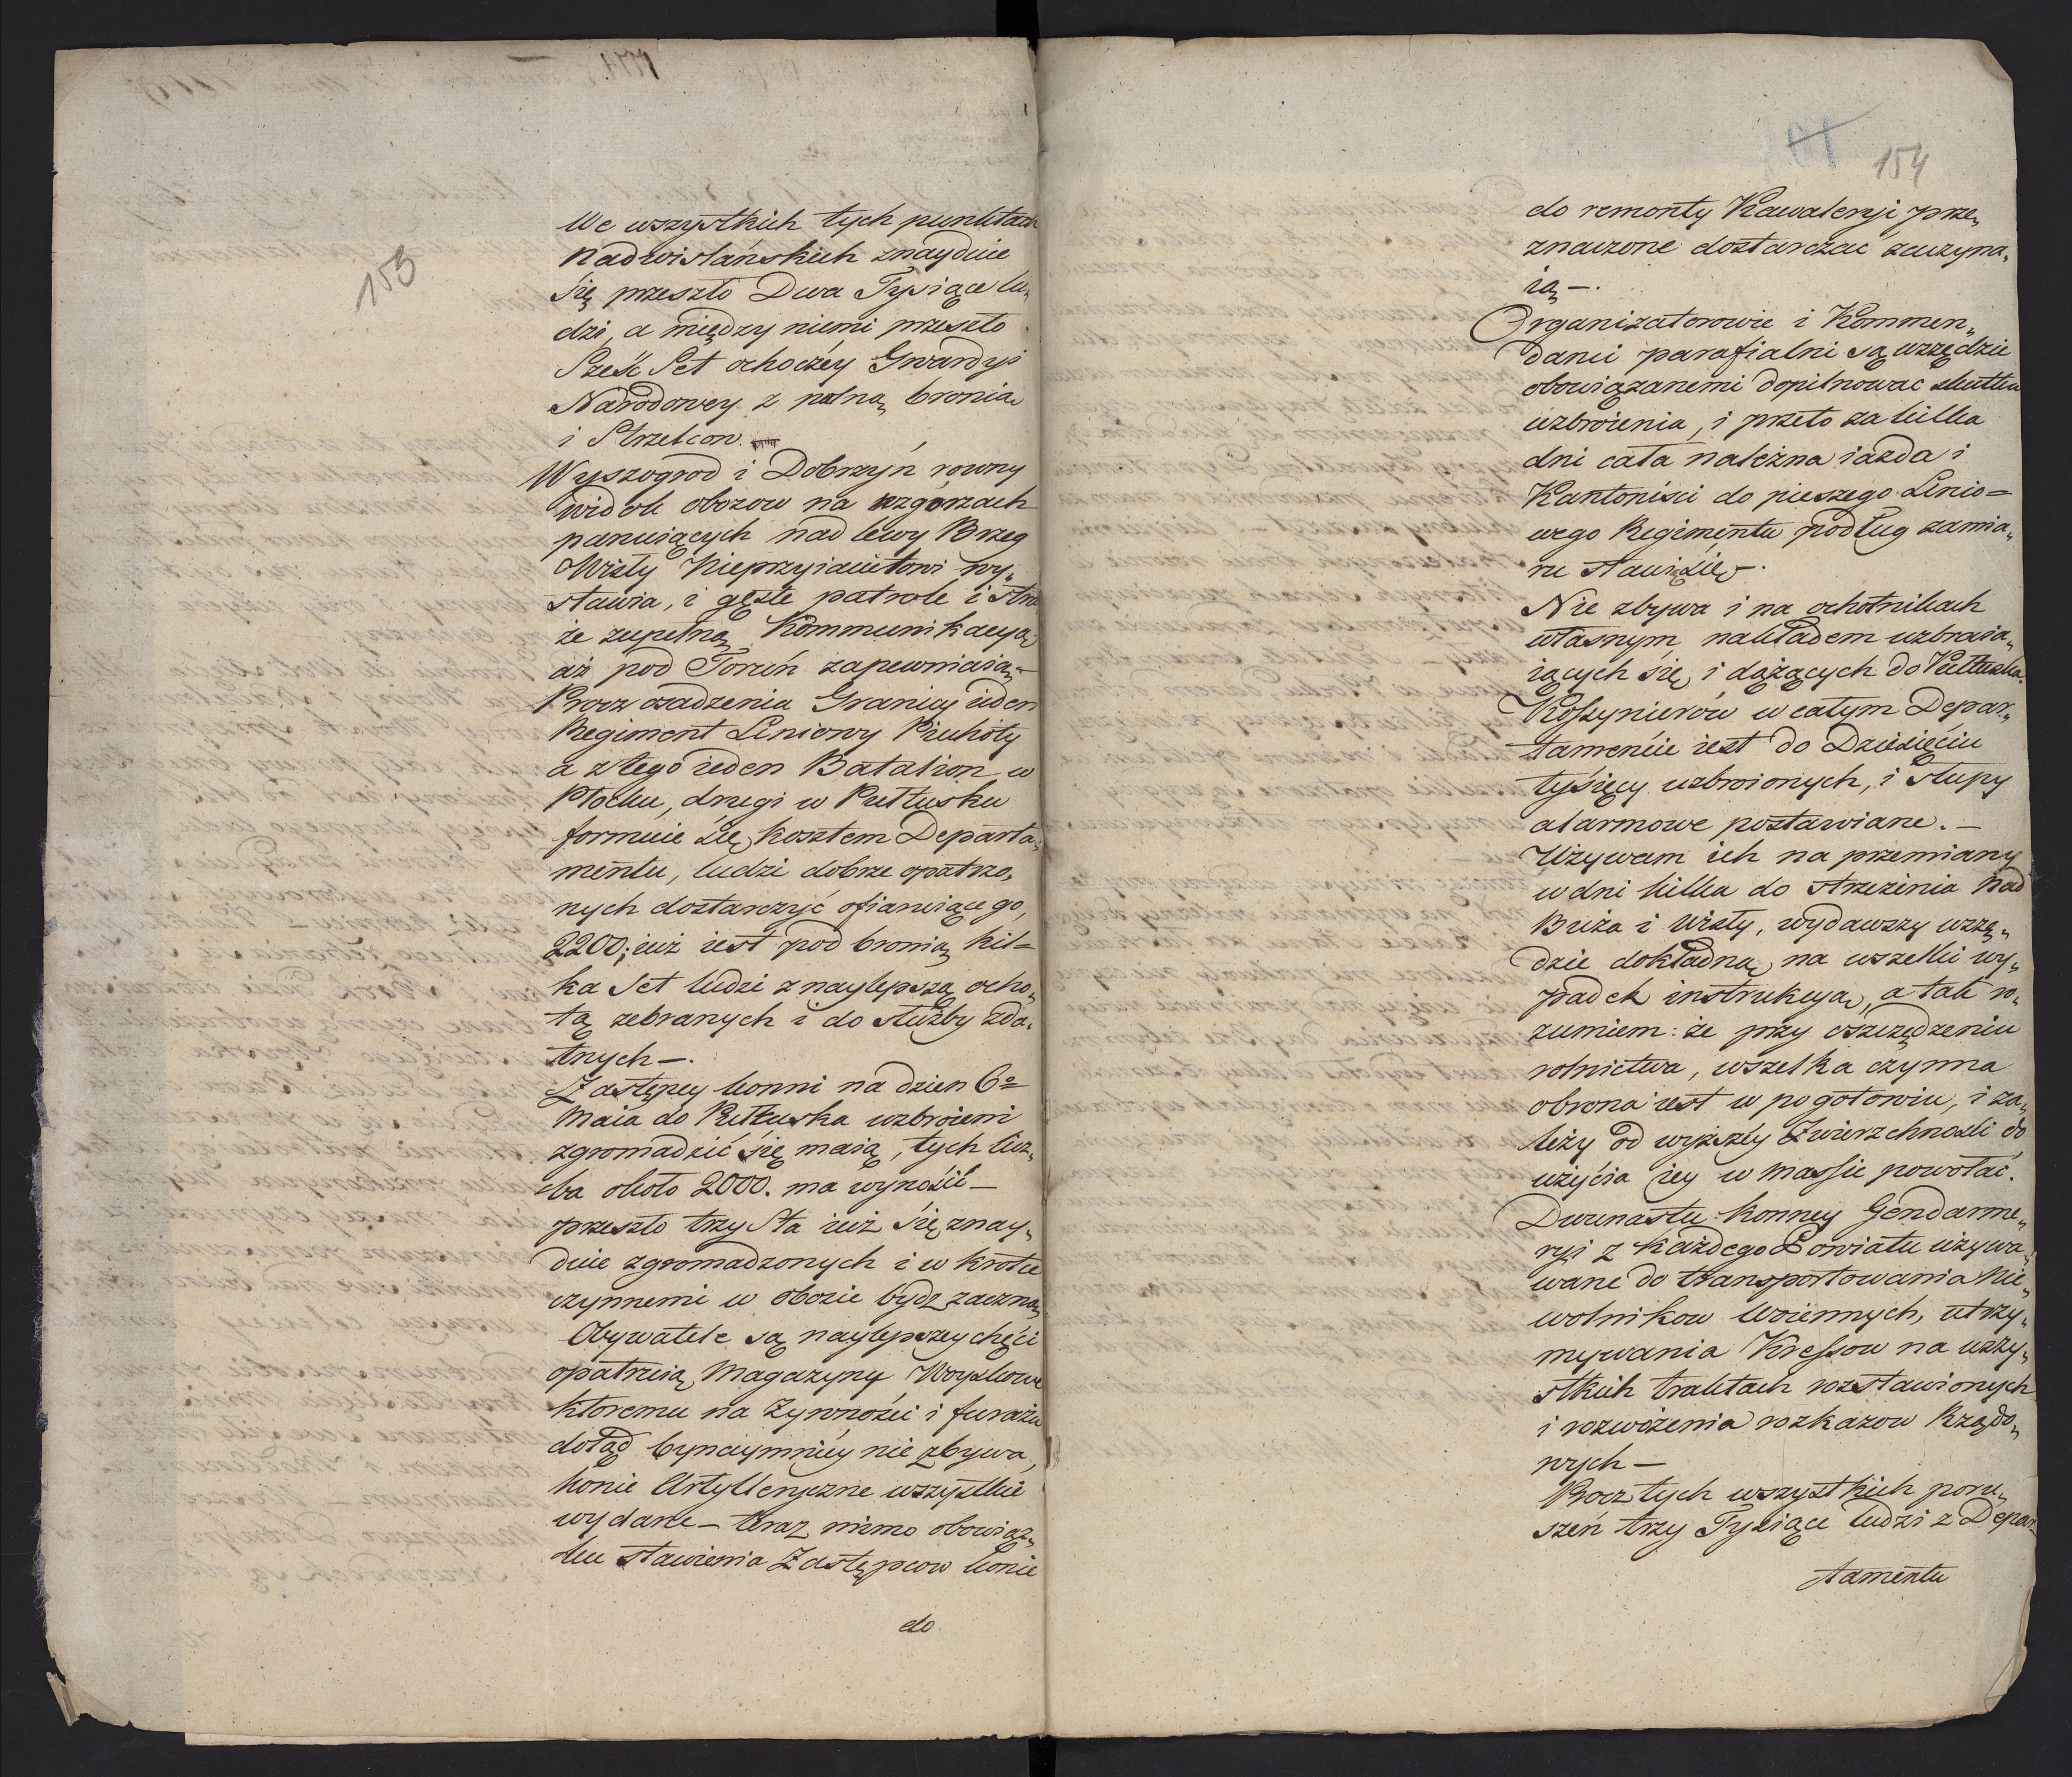 153
We wszystkich tych punktach
Nadwislańskich znayduie
się przeszło Dwa Tysiące lu„
dzi, a między niemi przeszło
Sześć Set ochoczéy Gwardyi
Narodowey z palną bronią
i Strzelcow.
Wyszogrod i Dobrzyń rowny
widok obozow na wzgórzach
panuiących nad lewy Brzeg
Wisły Nieprzyiacielowi wy„
stawia, i gęste patrole i stra
że zupełną Kommunikacyą
aż pod Toruń zapewniaią –
Procz osadzenia Granicy ieden
Regiment Liniowy Piechoty
a z tego ieden Batalion w
Płocku, drugi w Pułtusku
formuie się kosztem Departa„
mentu, ludzi dobrze opatrzo„
nych dostarczyć ofiaruiącego,
2200; iuż iest pod bronią kil=
ka Set ludzi z naylepszą ocho„
tą zebranych i do służby zda„
tnych –.
Zastępcy konni na dzien 6º
Maia do Pułtuska uzbroieni
zgromadzić się maią, tych licz„
ba około 2000. ma wynosić –
przeszło trzy Sta iuż się znay„
duie zgromadzonych i w krotce
czynnemi w obozie bydz zaczną
Obywatele są naylepszey chęci
opatruią Magazyny Woyskowe
ktoremu na Zywności i furażu
dotąd bynaymniey nie zbywa,
konie Artylleryczne wszystkie
wydane – teraz mimo obowiąz„
ku stawienia Zastępcow konie
do
154
do remonty Kawaleryi prze„
znaczone dostarczac zaczyna„
ią –.
Organizatorowie i Kommen„
danci parafialni są wszędzie
obowiązanemi dopilnowac skutku
uzbroienia, i przeto za kilka
dni cała należna iazda i
Kantoniści do pieszego Linio=
wego Regimentu podług zamia„
ru stawi się –.
Nie zbywa i na ochotnikach
własnym nakładem uzbraia„
iących się i dążących do Pułtuska.
Kossynierów w całym Depar„
tamencie iest do Dziesięciu
tysięcy uzbroionych, i słupy
alarmowe postawiane. –
Używam ich na przemiany
w dni kilka do strzeżenia Nad
Buża i Wisły, wydawszy wszę„
dzie dokładną na wszelki wy„
padek instrukcyą, a tak ro„
zumiem: że przy oszczędzeniu
rolnictwa, wszelka czynna
obrona iest w pogotowiu, i za„
leży od wyższéy Zwierzchności do
użycia iey w Massie powołac.
Dwunastu Konney Gendarme„
ryi z każdego Powiatu używa„
wane do transportowania Nie„
wolnikow Woiennych, utrzy„
mywania Kressow na wszy„
stkich traktach rozstawionych
i rozwożenia rozkazow Rządo„
wych –
Procz tych wszystkich poru„
szeń trzy Tysiące ludzi z Depar„
tamentu